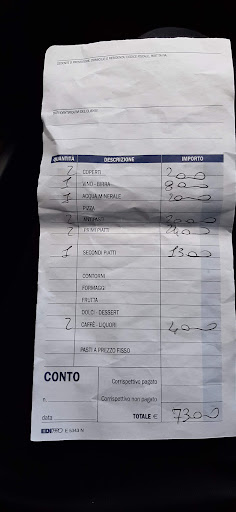 QUANTITÀ DESCRIZIONE IMPORTO
2 COPERTI 200
1 VINO - BIRRA 800
1 ACQUA MINERALE 200
PIZZA
2 ANTIPASTI
2 PRIMI PIATTI
1 SECONDI PIATTI 1300
CONTORNI
FORMAGGI
FRUTTA
DOLCI - DESSERT
2 CAFFÈ - LIQUORI 400
PASTI A PREZZO FISSO
CONTO
Corrispettivo pagato
n.
Corrispettivo non pagato
data
TOTALE € 7300
EDIPRO E 5343 N